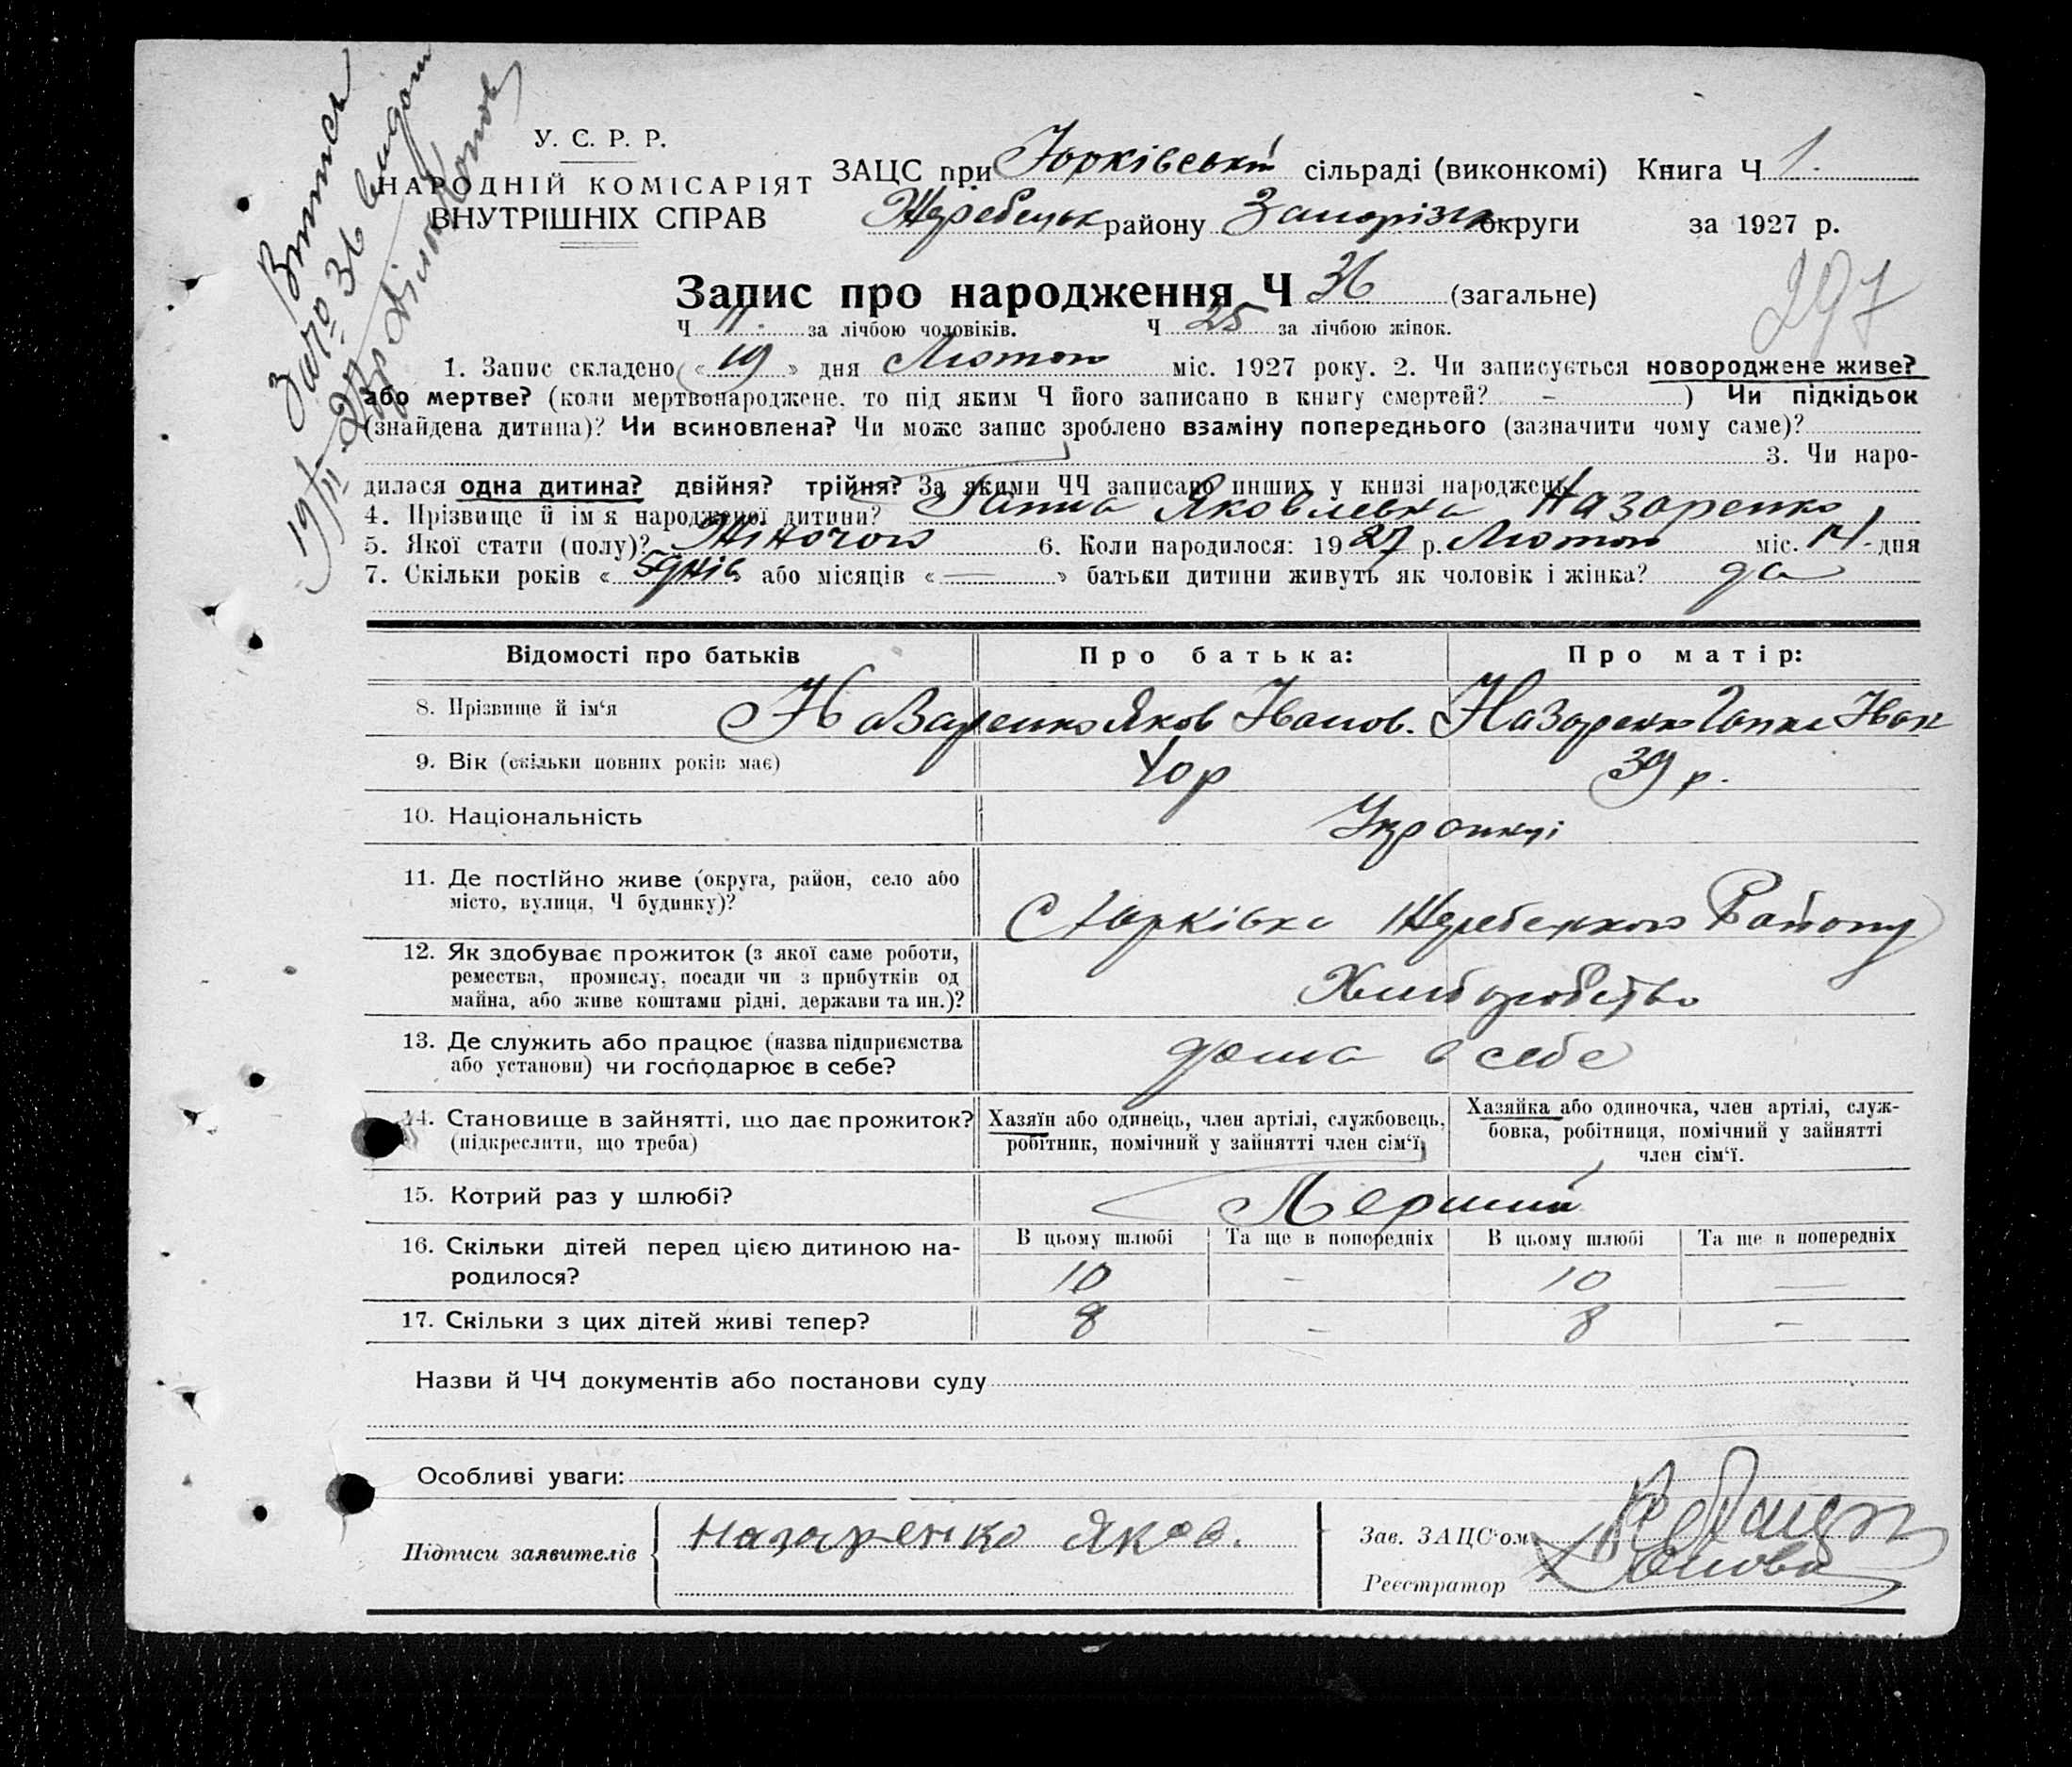 Выпись
за № 36 выдана
19/II 27 р.
У. С. Р. Р.
НАРОДНІЙ КОМІСАРІЯТ
ВНУТРІШНІХ СПРАВ
ЗАЦС при Юрківській сільраді (виконкомі) Книга Ч 1.
Жеребецьк району Запорізьк округи за 1927 р.
297
Запис про народження Ч 36 (загальне)
Ч 11. за лічбою чоловіків. Ч 25 за лічбою жінок.
1. Запис складено « 19 » дня Лютого міс. 1927 року. 2. Чи записується новороджене живе?
або мертве? (коли мертвонароджене, то під яким Ч його записано в книгу смертей? - ) Чи підкідьок
(знайдена дитина)? Чи всиновлена? Чи може запис зроблено взаміну попереднього (зазначити чому саме)?
3. Чи наро-
дилася одна дитина? двійня? трійня? За якими ЧЧ записано инших у книзі народжень
4. Прізвище й ім'я народженої дитини? Ганна Яковлевна Назаренко
5. Якої стати (полу)? Жіночої 6. Коли народилося: 1927 р. Лютого міс. 14 дня
7. Скільки років « 5 днів » або місяців « — » батьки дитини живуть як чоловік і жінка? да
Відомості про батьків Про батька: Про матір:
8. Прізвище й ім'я Назаренко Яков Іванов. Назаренко Ганна Іван
9. Вік (скільки повних років має) 40 р 39 р.
10. Національність Українці
11. Де постІйно живе (округа, район, село або
місто, вулиця, Ч будинку)? С Юрківка Жеребецького Району
12. Як здобуває прожиток (з якої саме роботи,
ремества, промислу, посади чи з прибутків од
майна, або живе коштами рідні, держави та ин.)? Хліборобство
13. Де служить або працює (назва підприємства
або установи) чи господарює в себе? дома в себе
14. Становище в зайнятті, що дає прожиток?
(підкреслити, що треба)
Хазяїн або одинець, член артілі, службовець,
робітник, помічний у зайнятті член сім'ї,
Хазяйка або одиночка, член артілі, служ-
бовка, робітниця, помічний у зайнятті
член сім'ї.
15. Котрий раз у шлюбі? Перший
16. Скільки дітей перед цією дитиною на-
родилося?
В цьому шлюбі Та ще в попередніх В цьому шлюбі Та ще в попередніх
10 - 10 —
17. Скільки з цих дітей живі тепер? 8 - 8 -
Назви й ЧЧ документів або постанови суду
Особливі уваги:
Підписи заявителів Назаренко Яков.
Зав. ЗАЦС'ом
Реєстратор